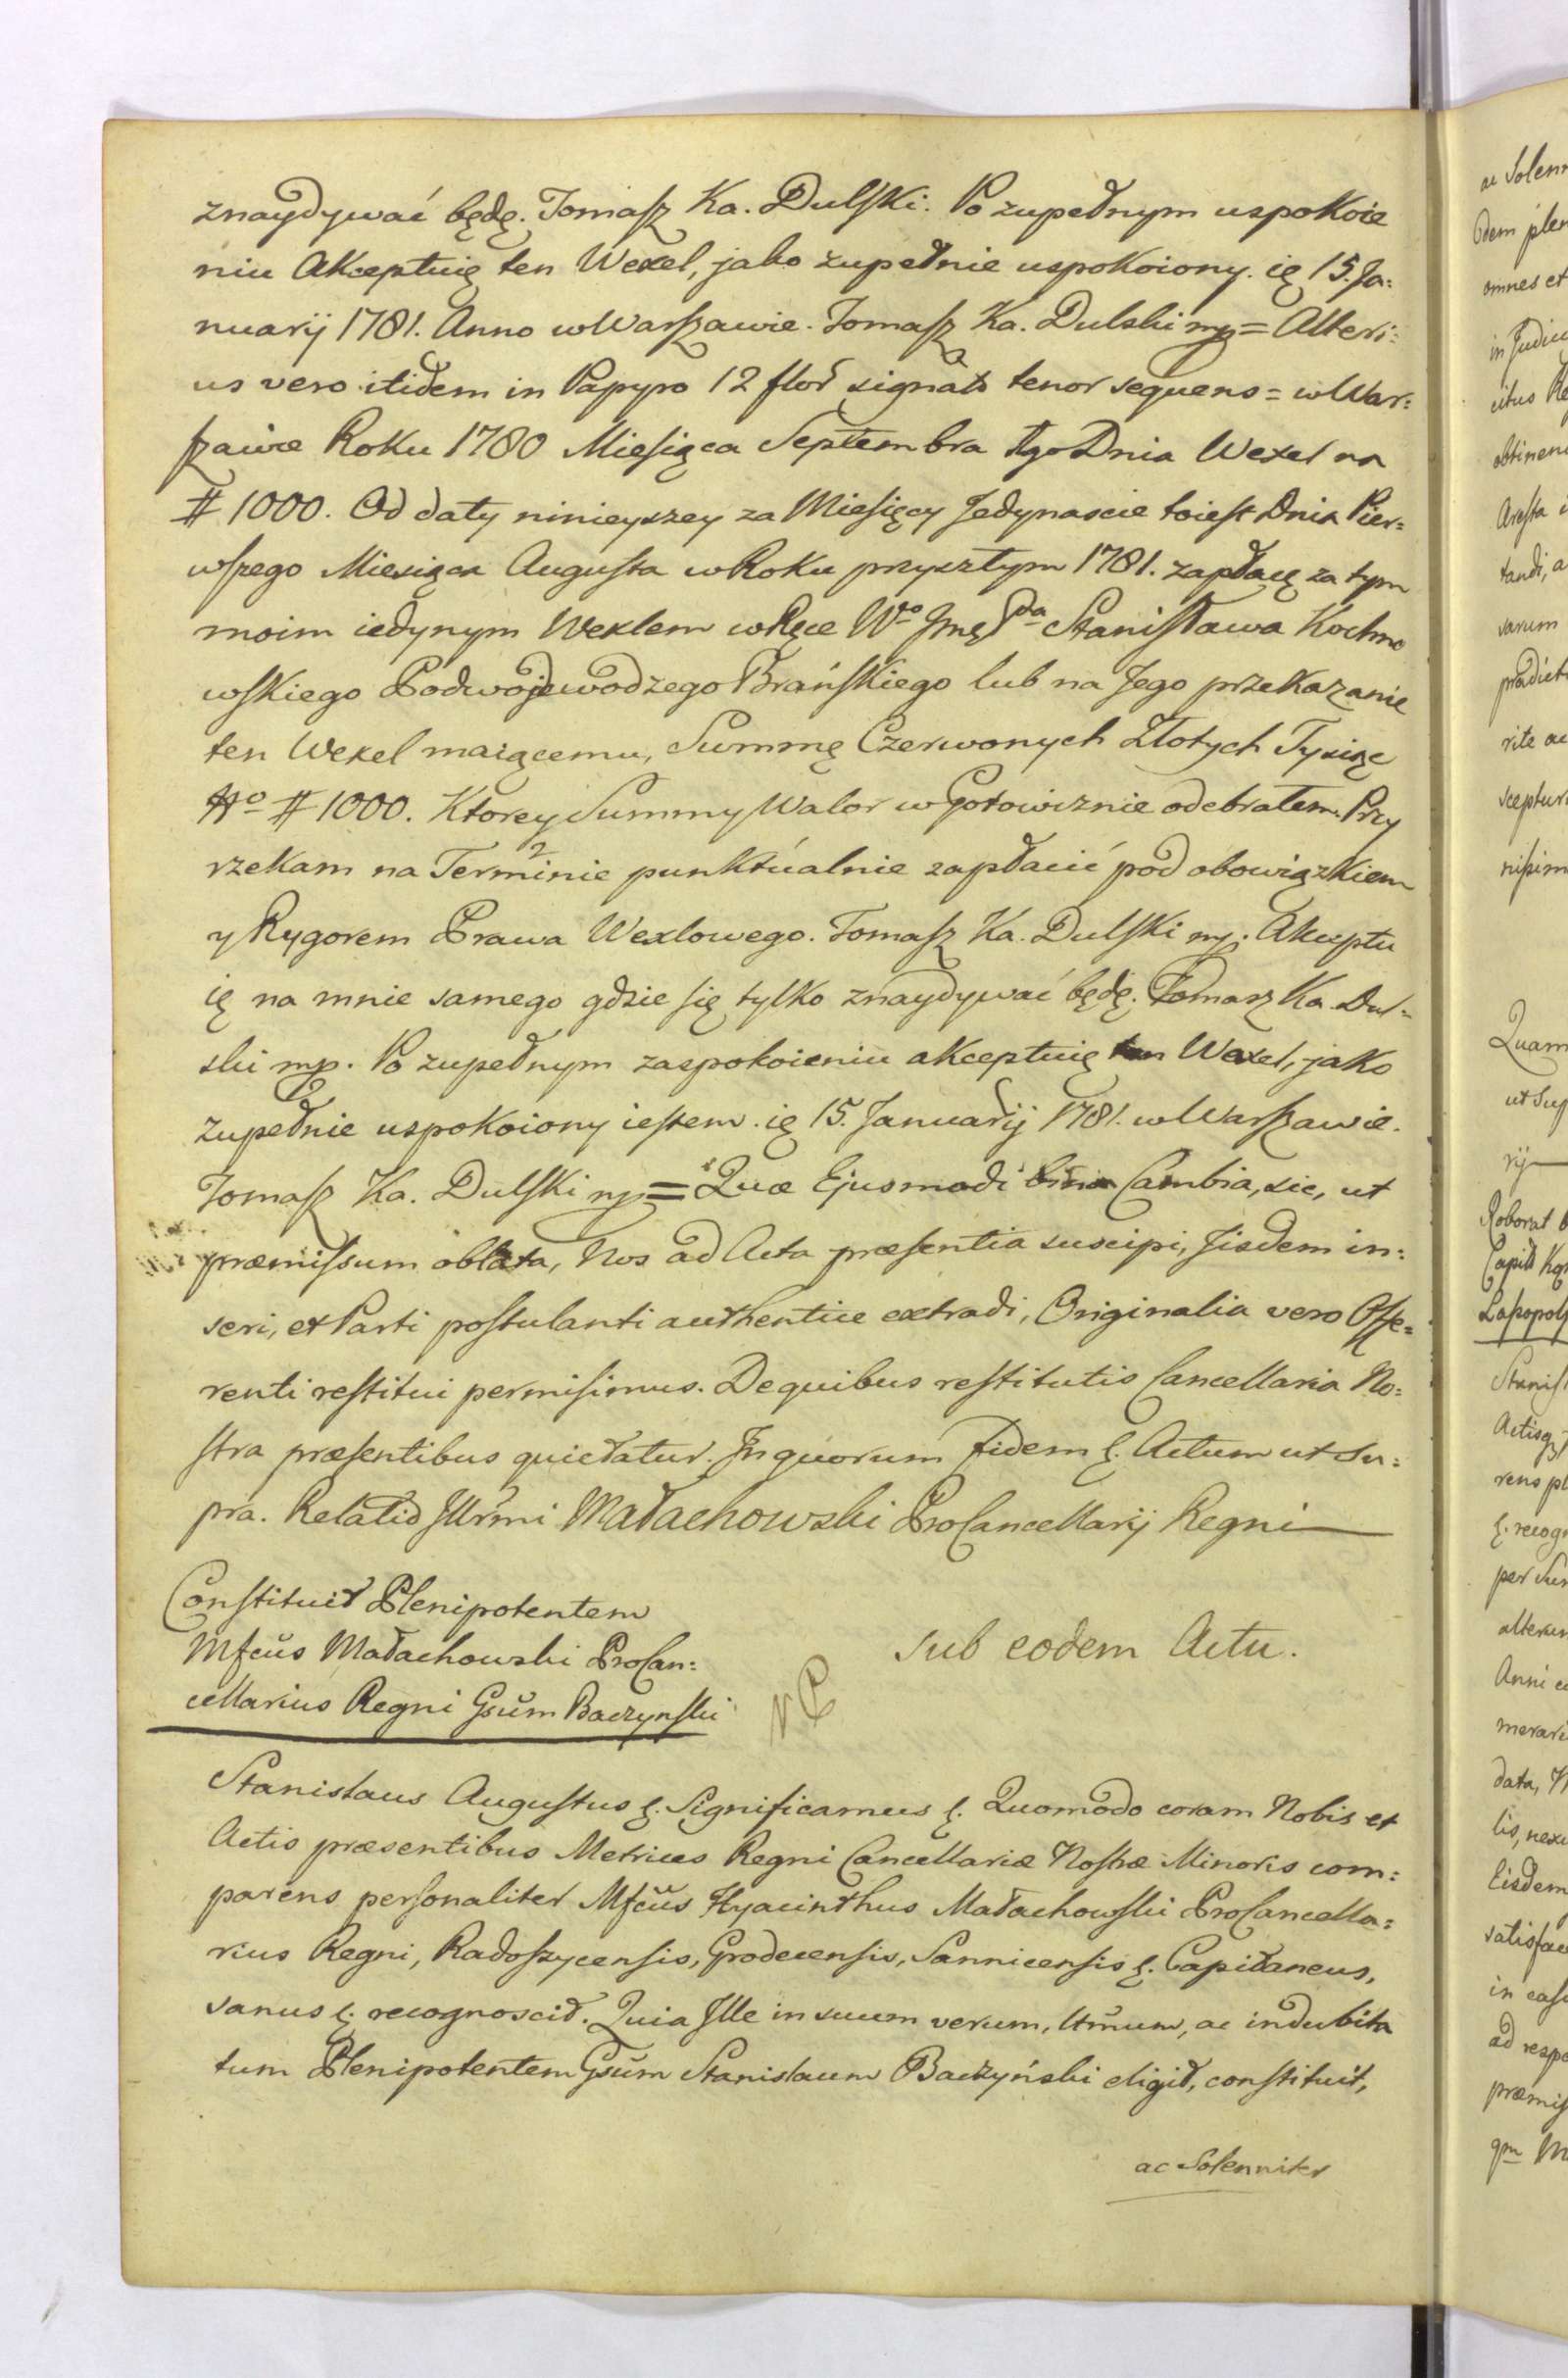 znaydywać będę. Tomasz Ka. Dulski. Po zupełnym uspokoie
niu Akceptuię ten Wexel, jako zupełnie uspokoiony. ię 15. Ja:
nuarij 1781. Anno w Warszawie. Tomasz Ka. Dulski mp = Alteri:
us vero itidem in Papyro 12 flor signato tenor sequens = w War:
szawie Roku 1780 Miesiąca Septembra 1go Dnia Wexel na
# 1000. Od daty ninieyszey za Miesięcy Jedynascie toiest Dnia Pier=
wszego Miesiąca Augusta w Roku przyszłym 1781. zapłacę za tym
moim iedynym Wexlem w Ręce Wo Jmę Pda Stanisława Kochno
wskiego Podwojewodzego Brańskiego lub na Jego przekazanie
ten Wexel maiącemu, Summę Czerwonych Złotych Tysiąc
No # 1000. Ktorey Summy Walor w Gotowiznie odebrałem. Przy
rzekam na Terminie punktualnie zapłacić pod obowiązkiem
y Rygorem Prawa Wexlowego. Tomasz Ka. Dulski mp. Akceptu
ię na mnie samego gdzie się tylko znaydywać będę. Tomasz Ka. Dul=
ski mp. Po zupełnym zaspokoieniu akceptuię ten Wexel, jako
zupełnie uspokoiony iestem. ię 15. Januarij 1781. w Warszawie.
Tomasz Ka. Dulski mp = Quæ Ejusmodi bina Cambia, sic, ut
præmissum oblata, Nos ad Acta præsentia suscipi, Jisdem in:
seri, et Parti postulanti authentice extradi, Originalia vero Offe=
renti restitui permisimus. De quibus restitutis Cancellaria No=
stra præsentibus quietatur. In quorum fidem &. Actum ut Su:
pra. Relatio Illrmi Małachowski ProCancellarij Regni
Constituit Plenipotentem
Mfcus Małachowski ProCan:
cellarius Regni Gsum Baczynski
Sub eodem Actu.
Stanislaus Augustus &. Significamus &. Quomodo coram Nobis et
Actis præsentibus Metrices Regni Cancellariæ Nostræ Minoris com:
parens personaliter Mfcus Hyacinthus Małachowski ProCancella=
rius Regni, Radoszycensis, Grodecensis, Sannicensis &. Capitaneus,
sanus &. recognoscit. Quia Ille in suum verum, ltmum, ac indubita
tum Plenipotentem Gsum Stanislaum Baczyński eligit, constituit,
ac Solenniter